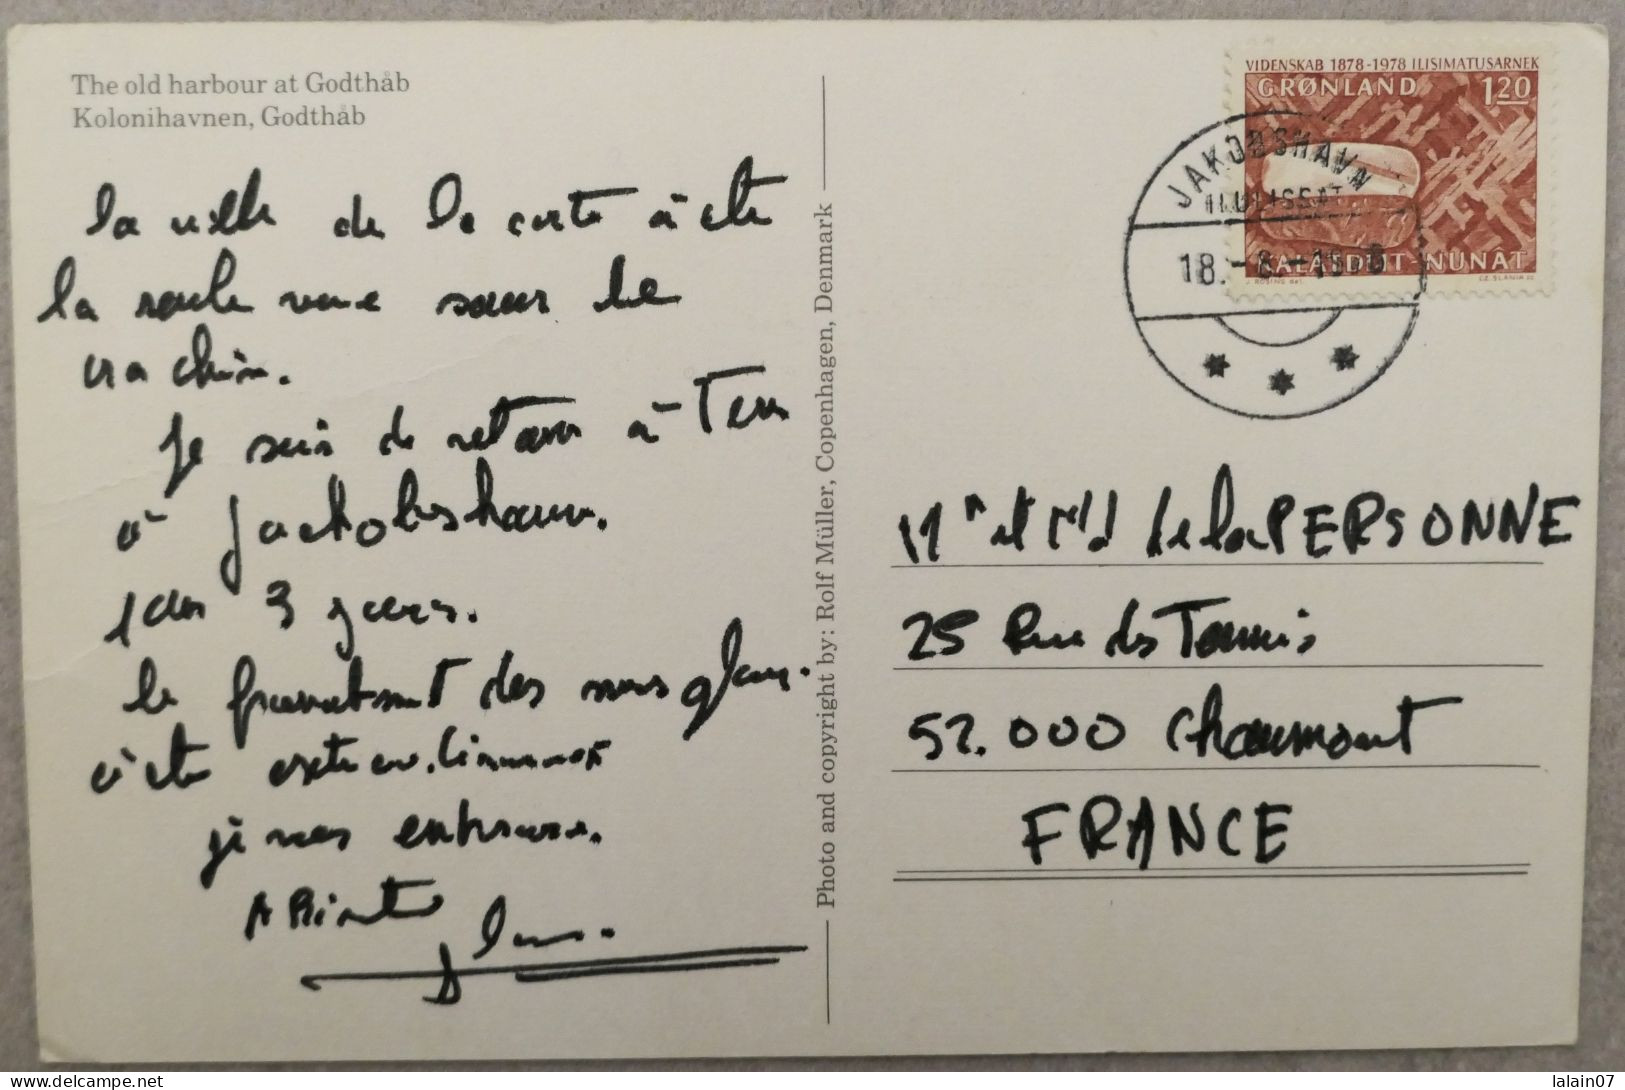 The old harbour at Godthåb
Kolonihavnen, Godthåb
la ville de la carte à été
la seule vue sous le
crachin.
Je suis de retour à Terre
à Jackobshavn.
pour 3 jours.
le des
à été
je vous embrasse.
A Bientôt
Photo and copyright by: Rolf Müller, Copenhagen, Denmark
VIDENSKAB 1878-1978 ILISIMATUSARNEK
GRØNLAND 120
KALÂTDLIT-NUNÂT
J. RØSING del. CZ. SLANIA sc.
JAKOBSHAVN
ILULISSAT
18.-8.-19
Mr et Md de la PERSONNE
25 Rue des Tennis
52.000 Chaumont
FRANCE
lalain07